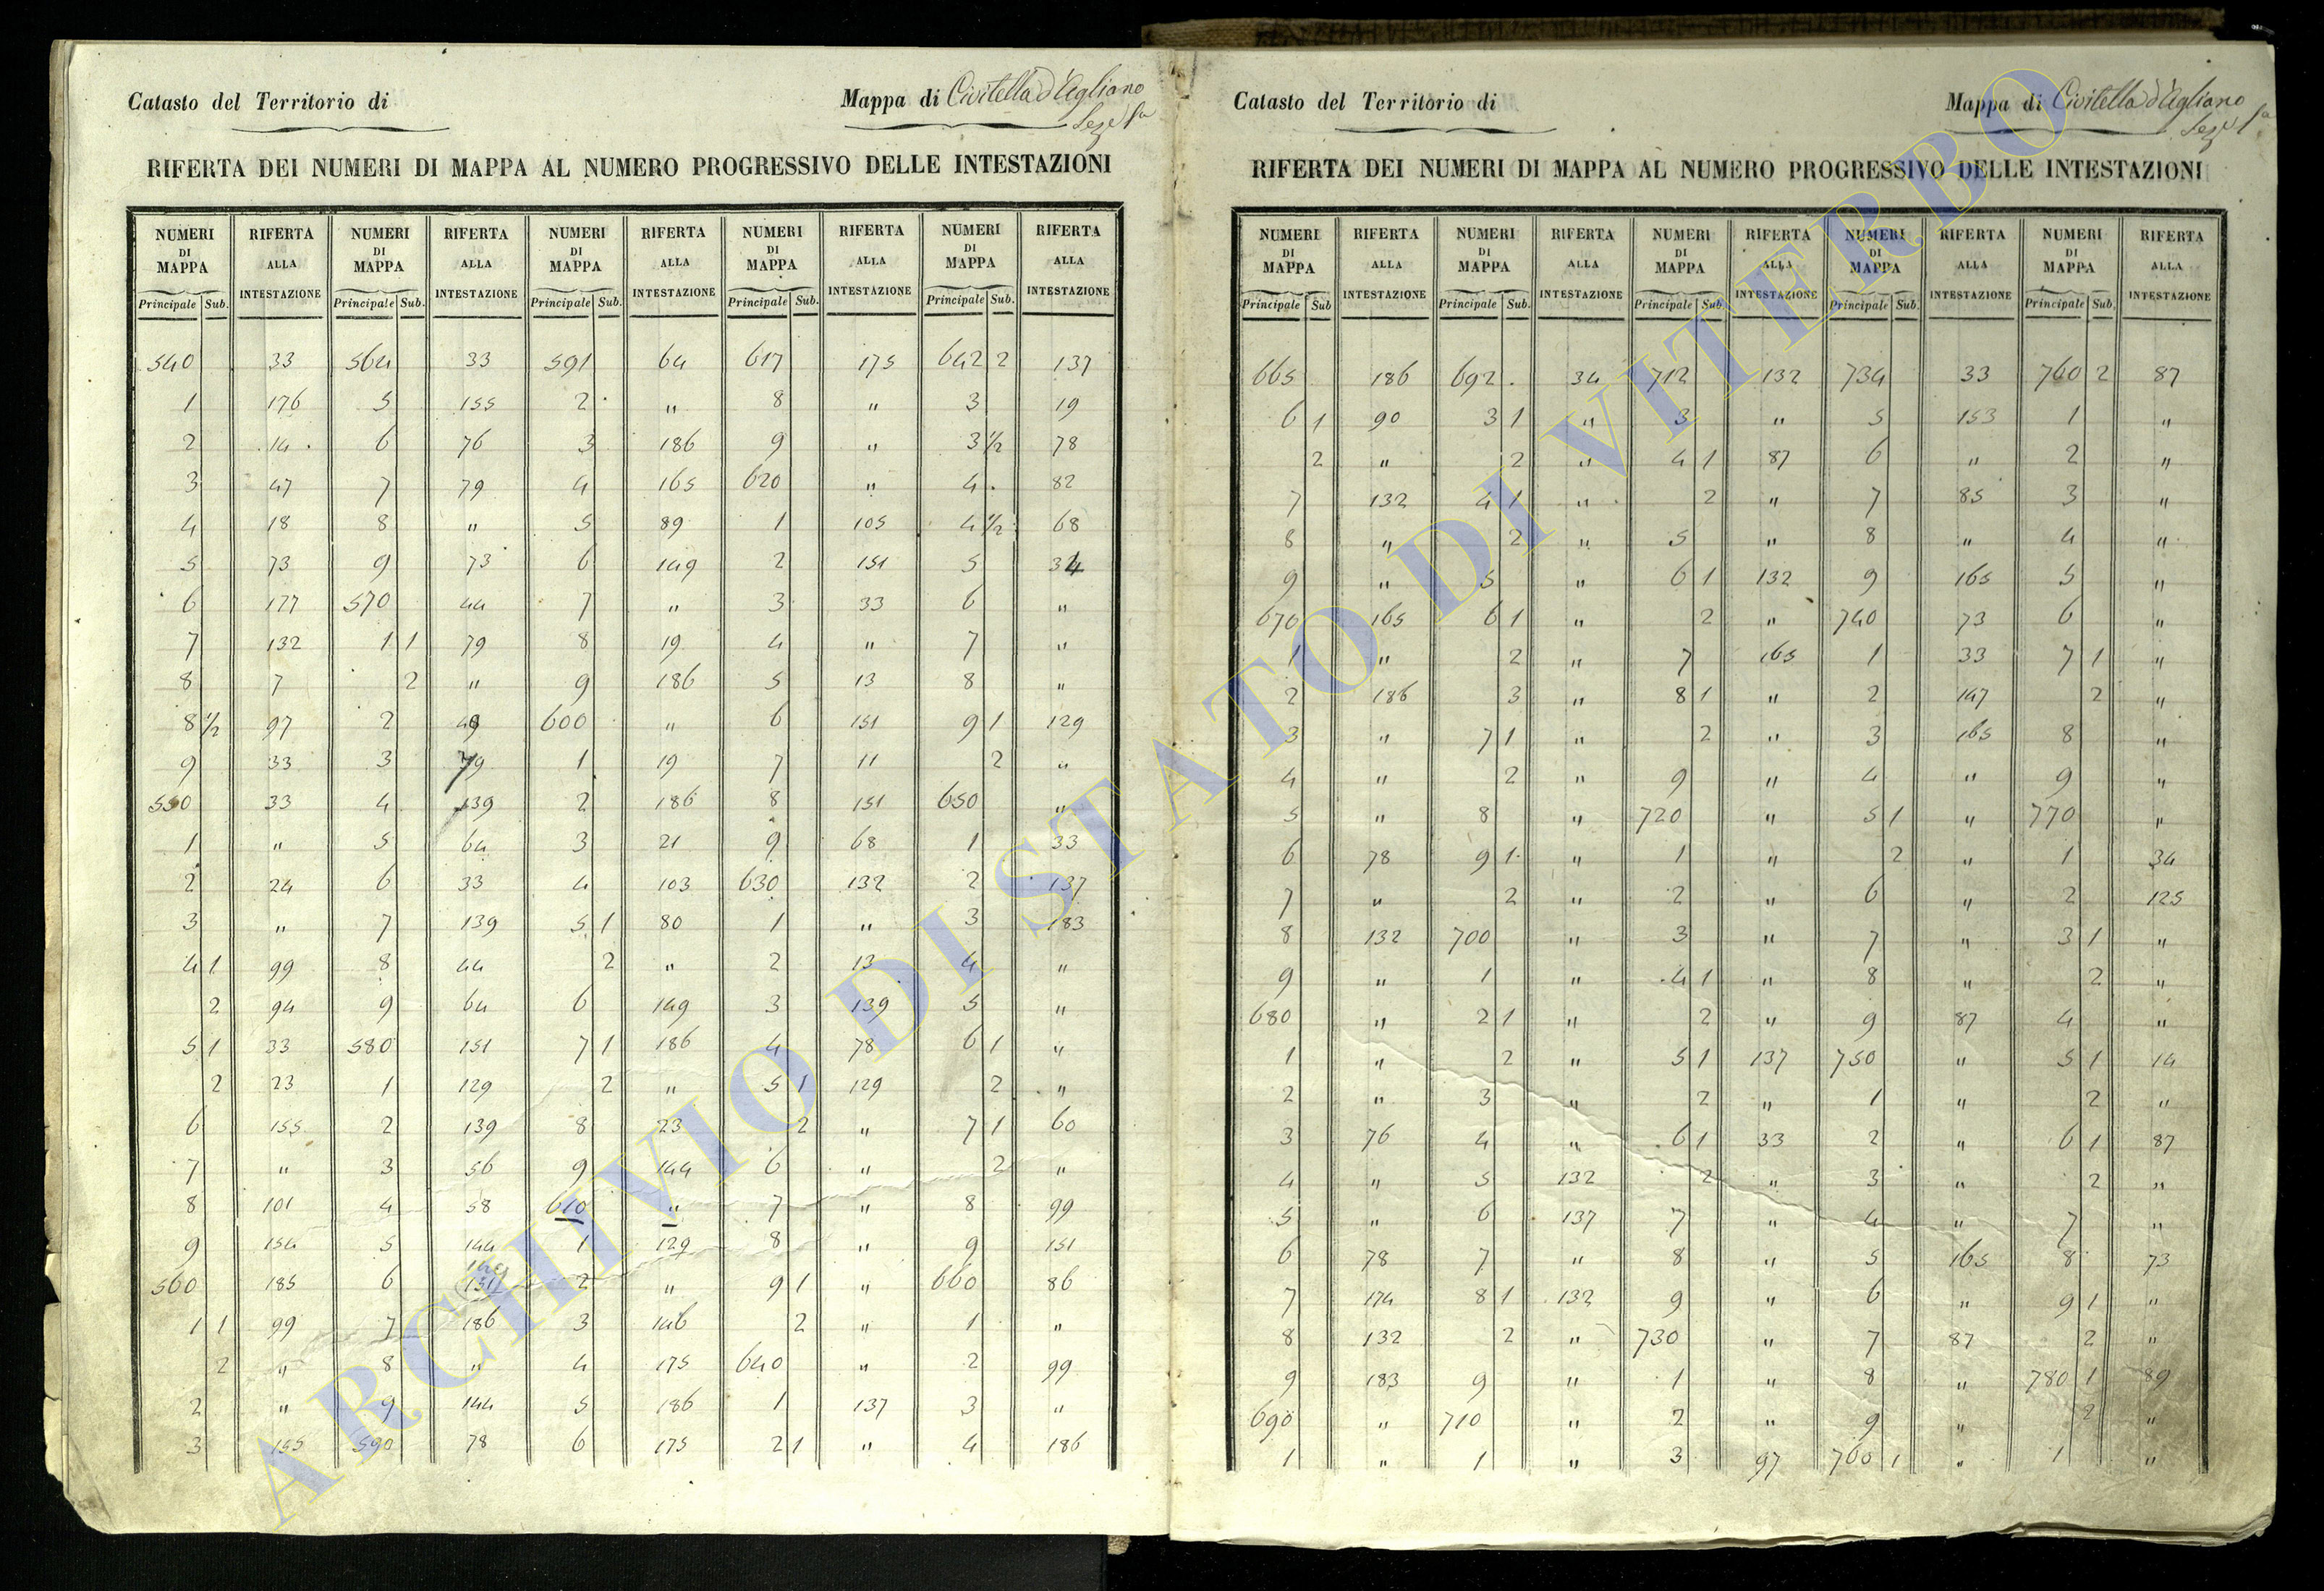 Catasto del Territorio di
Mappa di Civitella d'Agliano
Sez.e 1a
RIFERTA DEI NUMERI DI MAPPA AL NUMERO PROGRESSIVO DELLE INTESTAZIONI
NUMERI DI MAPPA RIFERTA ALLA INTESTAZIONE NUMERI DI MAPPA RIFERTA ALLA INTESTAZIONE NUMERI DI MAPPA RIFERTA ALLA INTESTAZIONE NUMERI DI MAPPA RIFERTA ALLA INTESTAZIONE NUMERI DI MAPPA RIFERTA ALLA INTESTAZIONE
Principale Sub. Principale Sub. Principale Sub. Principale Sub. Principale Sub.
540 33 564 33 591 64 617 175 642 2 137
1 176 5 155 2 " 8 " 3 19
2 14 6 76 3 186 9 " 3 1/2 78
3 47 7 79 4 165 620 " 4 82
4 18 8 " 5 89 1 105 4 1/2 68
5 73 9 73 6 149 2 151 5 34
6 177 570 44 7 " 3 33 6 "
7 132 1 1 79 8 19 4 " 7 "
8 7 2 " 9 186 5 13 8 "
8 1/2 97 2 49 600 " 6 151 9 1 129
9 33 3 79 1 19 7 11 2 "
550 33 4 139 2 186 8 151 650 "
1 " 5 64 3 21 9 68 1 33
2 24 6 33 4 103 630 132 2 137
3 " 7 139 5 1 80 1 " 3 183
4 1 99 8 44 2 " 2 13 4 "
2 94 9 64 6 149 3 139 5 "
5 1 33 580 151 7 1 186 4 78 6 1 "
2 23 1 129 2 " 5 1 129 2 "
6 155 2 139 8 23 2 " 7 1 60
7 " 3 56 9 144 6 " 2 "
8 101 4 58 610 " 7 " 8 99
9 154 5 144 1 129 8 " 9 151
149
560 185 6 151 2 " 9 1 " 660 86
1 1 99 7 186 3 146 2 " 1 "
2 " 8 " 4 175 640 " 2 99
2 " 9 144 5 186 1 137 3 "
3 155 590 78 6 175 2 1 " 4 186
Catasto del Territorio di
Mappa di Civitella d'Agliano
Sez.e 1a
RIFERTA DEI NUMERI DI MAPPA AL NUMERO PROGRESSIVO DELLE INTESTAZIONI
NUMERI DI MAPPA RIFERTA ALLA INTESTAZIONE NUMERI DI MAPPA RIFERTA ALLA INTESTAZIONE NUMERI DI MAPPA RIFERTA ALLA INTESTAZIONE NUMERI DI MAPPA RIFERTA ALLA INTESTAZIONE NUMERI DI MAPPA RIFERTA ALLA INTESTAZIONE
Principale Sub Principale Sub. Principale Sub. Principale Sub. Principale Sub.
665 186 692 34 712 132 734 33 760 2 87
6 1 90 3 1 " 3 " 5 153 1 "
2 " 2 " 4 1 87 6 " 2 "
7 132 4 1 " 2 " 7 85 3 "
8 " 2 " 5 " 8 " 4 "
9 " 5 " 6 1 132 9 165 5 "
670 165 6 1 " 2 " 740 73 6 "
1 " 2 " 7 165 1 33 7 1 "
2 186 3 " 8 1 " 2 147 2 "
3 " 7 1 " 2 " 3 165 8 "
4 " 2 " 9 " 4 " 9 "
5 " 8 " 720 " 5 1 " 770 "
6 78 9 1 " 1 " 2 " 1 34
7 " 2 " 2 " 6 " 2 125
8 132 700 " 3 " 7 " 3 1 "
9 " 1 " 4 1 " 8 " 2 "
680 " 2 1 " 2 " 9 87 4 "
1 " 2 " 5 1 137 750 " 5 1 14
2 " 3 " 2 " 1 " 2 "
3 76 4 " 6 1 33 2 " 6 1 87
4 " 5 132 2 " 3 " 2 "
5 " 6 137 7 " 4 " 7 "
6 78 7 " 8 " 5 165 8 73
7 174 8 1 132 9 " 6 " 9 1 "
8 132 2 " 730 " 7 87 2 "
9 183 9 " 1 " 8 " 780 1 89
690 " 710 " 2 " 9 " 2 "
1 " 1 " 3 97 760 1 " 1 "
ARCHIVIO DI STATO DI VITERBO